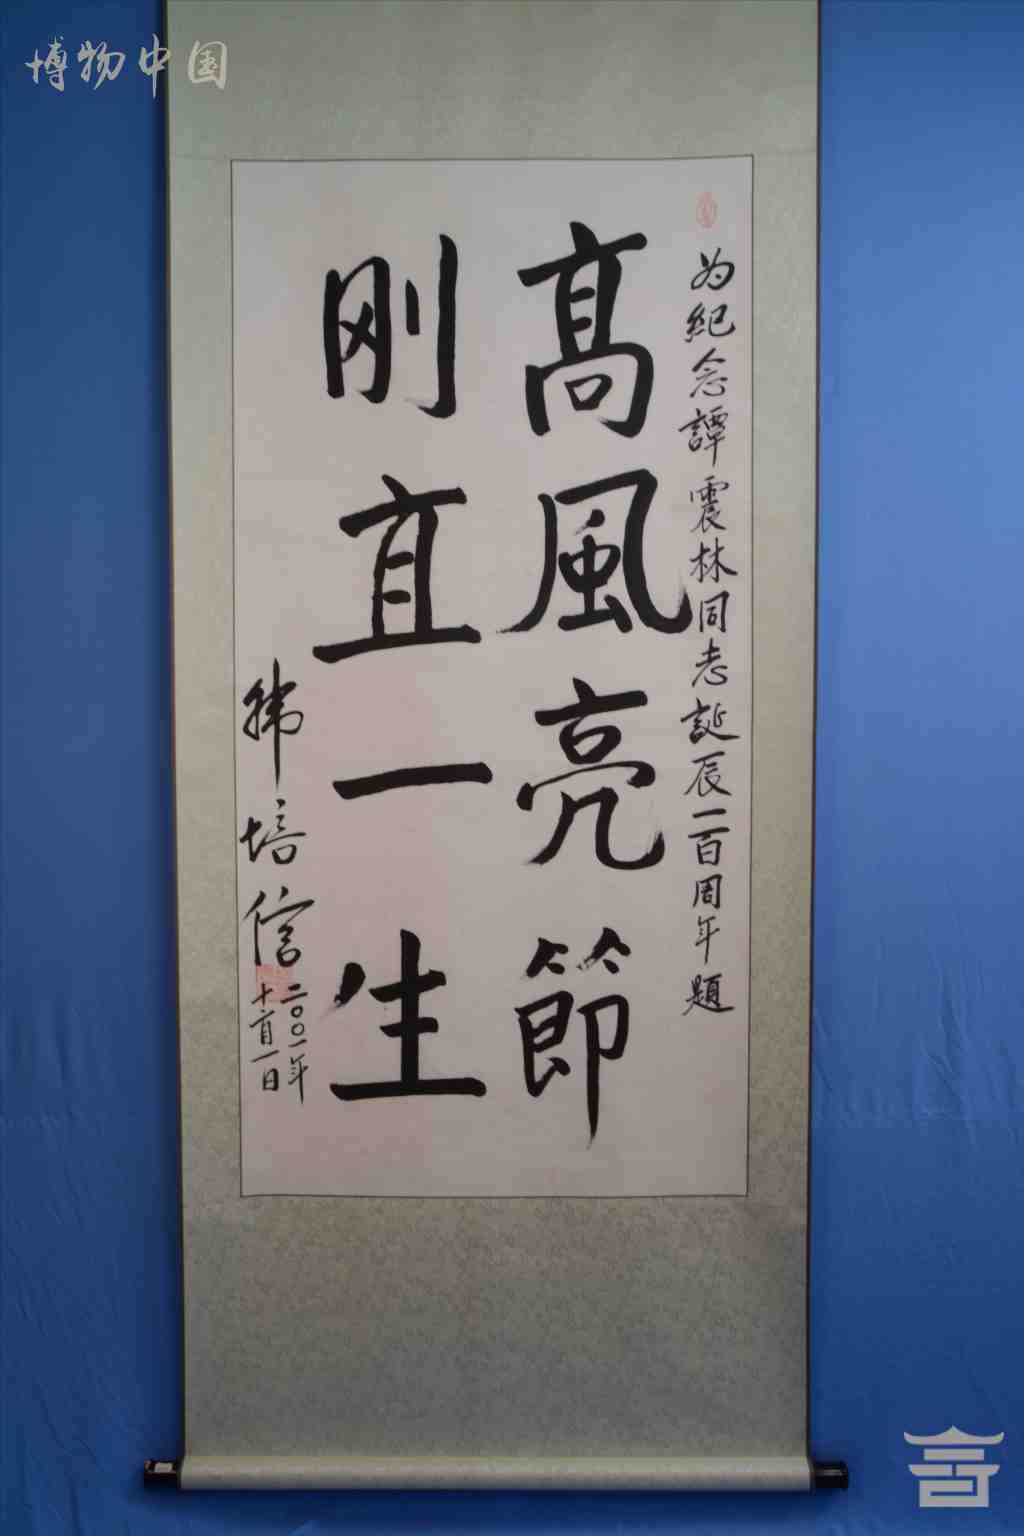 博物中国
为紀念譚震林同志誕辰一百周年題
髙風亮節
刚直一生
韩培信
二〇〇一年
十一月一日